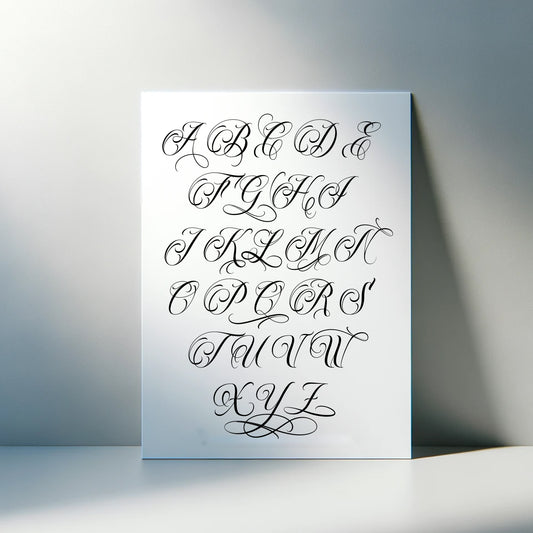 A B C D E
F G H I
J K L M N
O P Q R S
T U V W
X Y Z